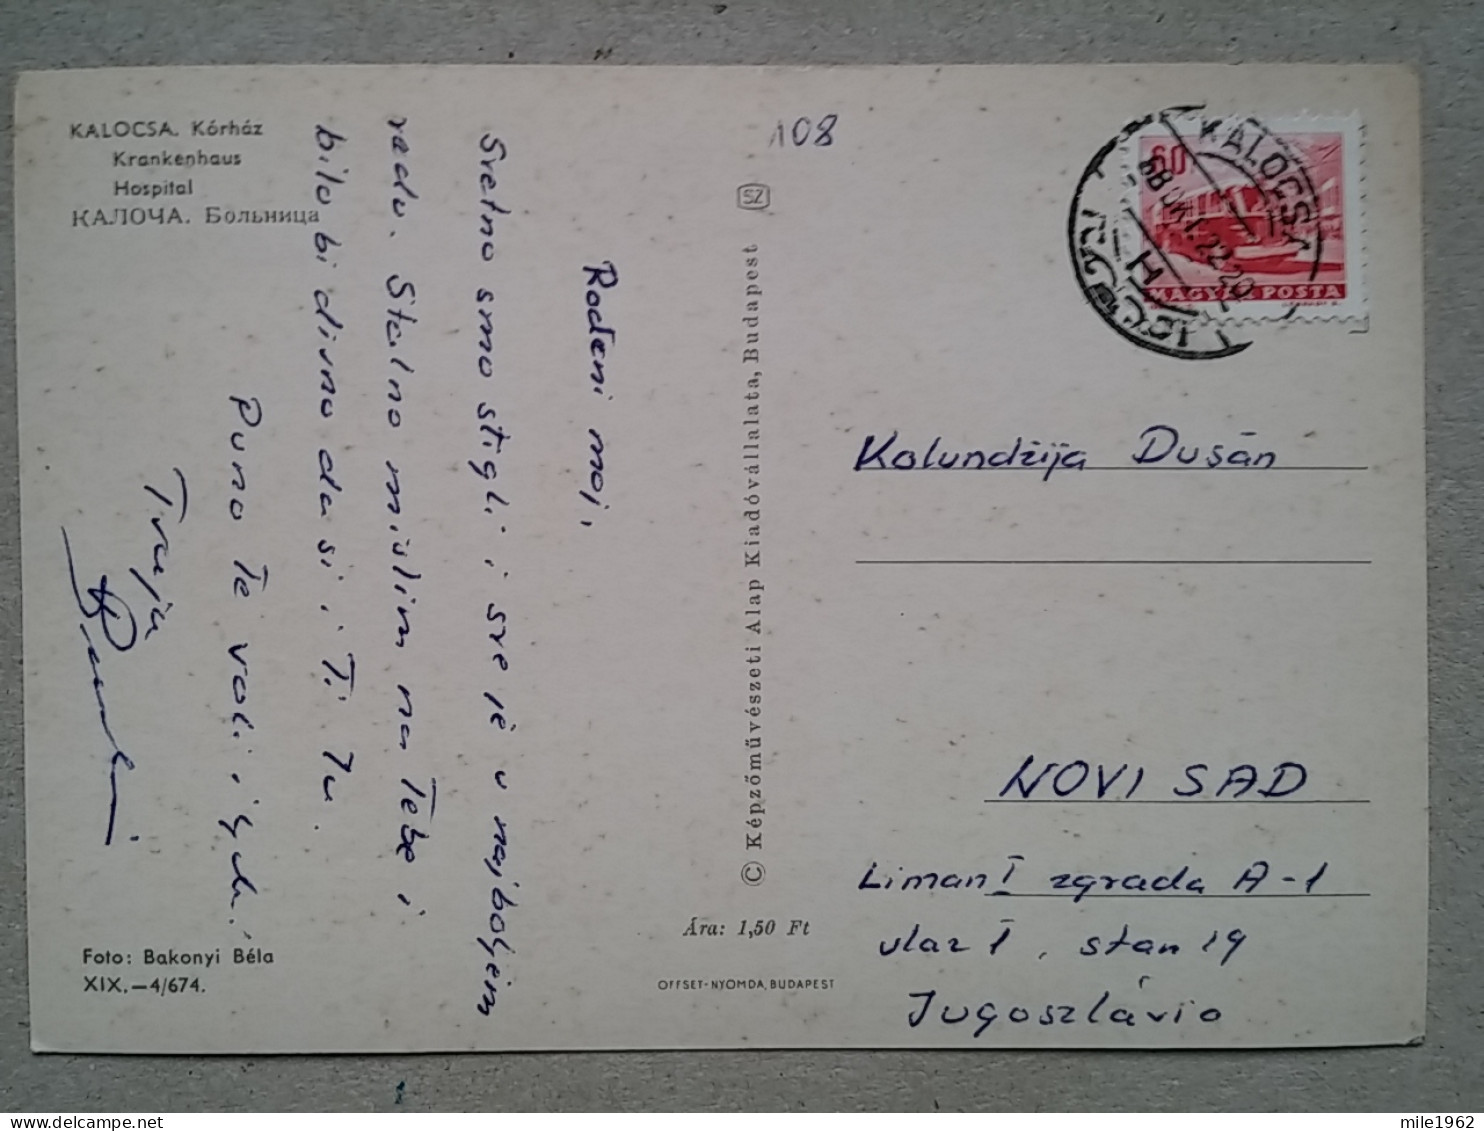 KALOCSA. Kórház
Krankenhaus
Hospital
КАЛОЧА. Больница
Rođeni moj,
Sretno smo stigli i sve je u najboljem
redu. Stalno mislim na Tebe i
bilo bi divno da si i Ti tu.
Puno te voli i ljubi
Tvoja
Foto: Bakonyi Béla
XIX.—4/674.
108
SZ
© Képzőművészeti Alap Kiadóvállalata, Budapest
Ára: 1,50 Ft
OFFSET-NYOMDA, BUDAPEST
60
MAGYAR POSTA
KALOCSA
Kalundžija Dušan
NOVI SAD
Liman I zgrada A-1
ulaz I, stan 19
Jugoszlávia
mile1962